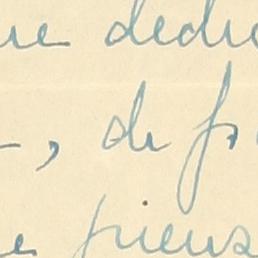 ue dedic
, de fr
e pieus